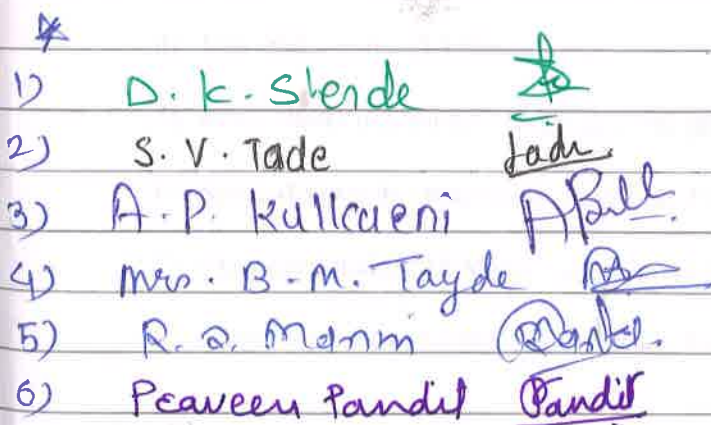 1) D. K. Shende
2) S. V. Tade Tade
3) A. P. Kullcaeni
4) Mrs. B. M. Tayde
5) R. Q.
6) Peaveen Pandit Pandit